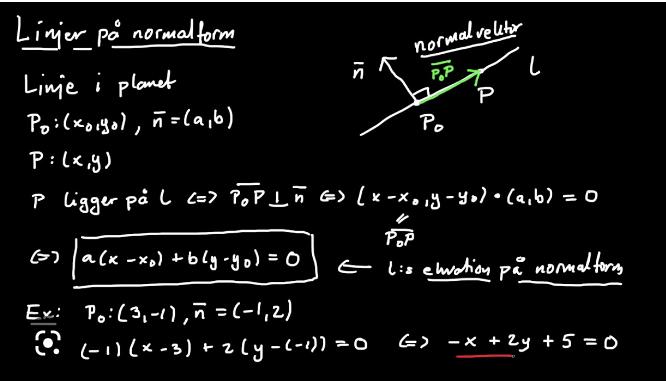 Linjer på normalform
normalvektor
n̄
P₀P
l
P
P₀
Linje i planet
P₀:(x₀,y₀), n̄=(a,b)
P:(x,y)
P ligger på l <=> P₀P ⊥ n̄ <=> (x-x₀,y-y₀)•(a,b) = 0
=
P₀P
<=> a(x-x₀)+b(y-y₀)=0 <— l:s ekvation på normalform
Ex: P₀:(3,-1), n̄=(-1,2)
(-1)(x-3)+2(y-(-1))=0 <=> -x+2y+5=0